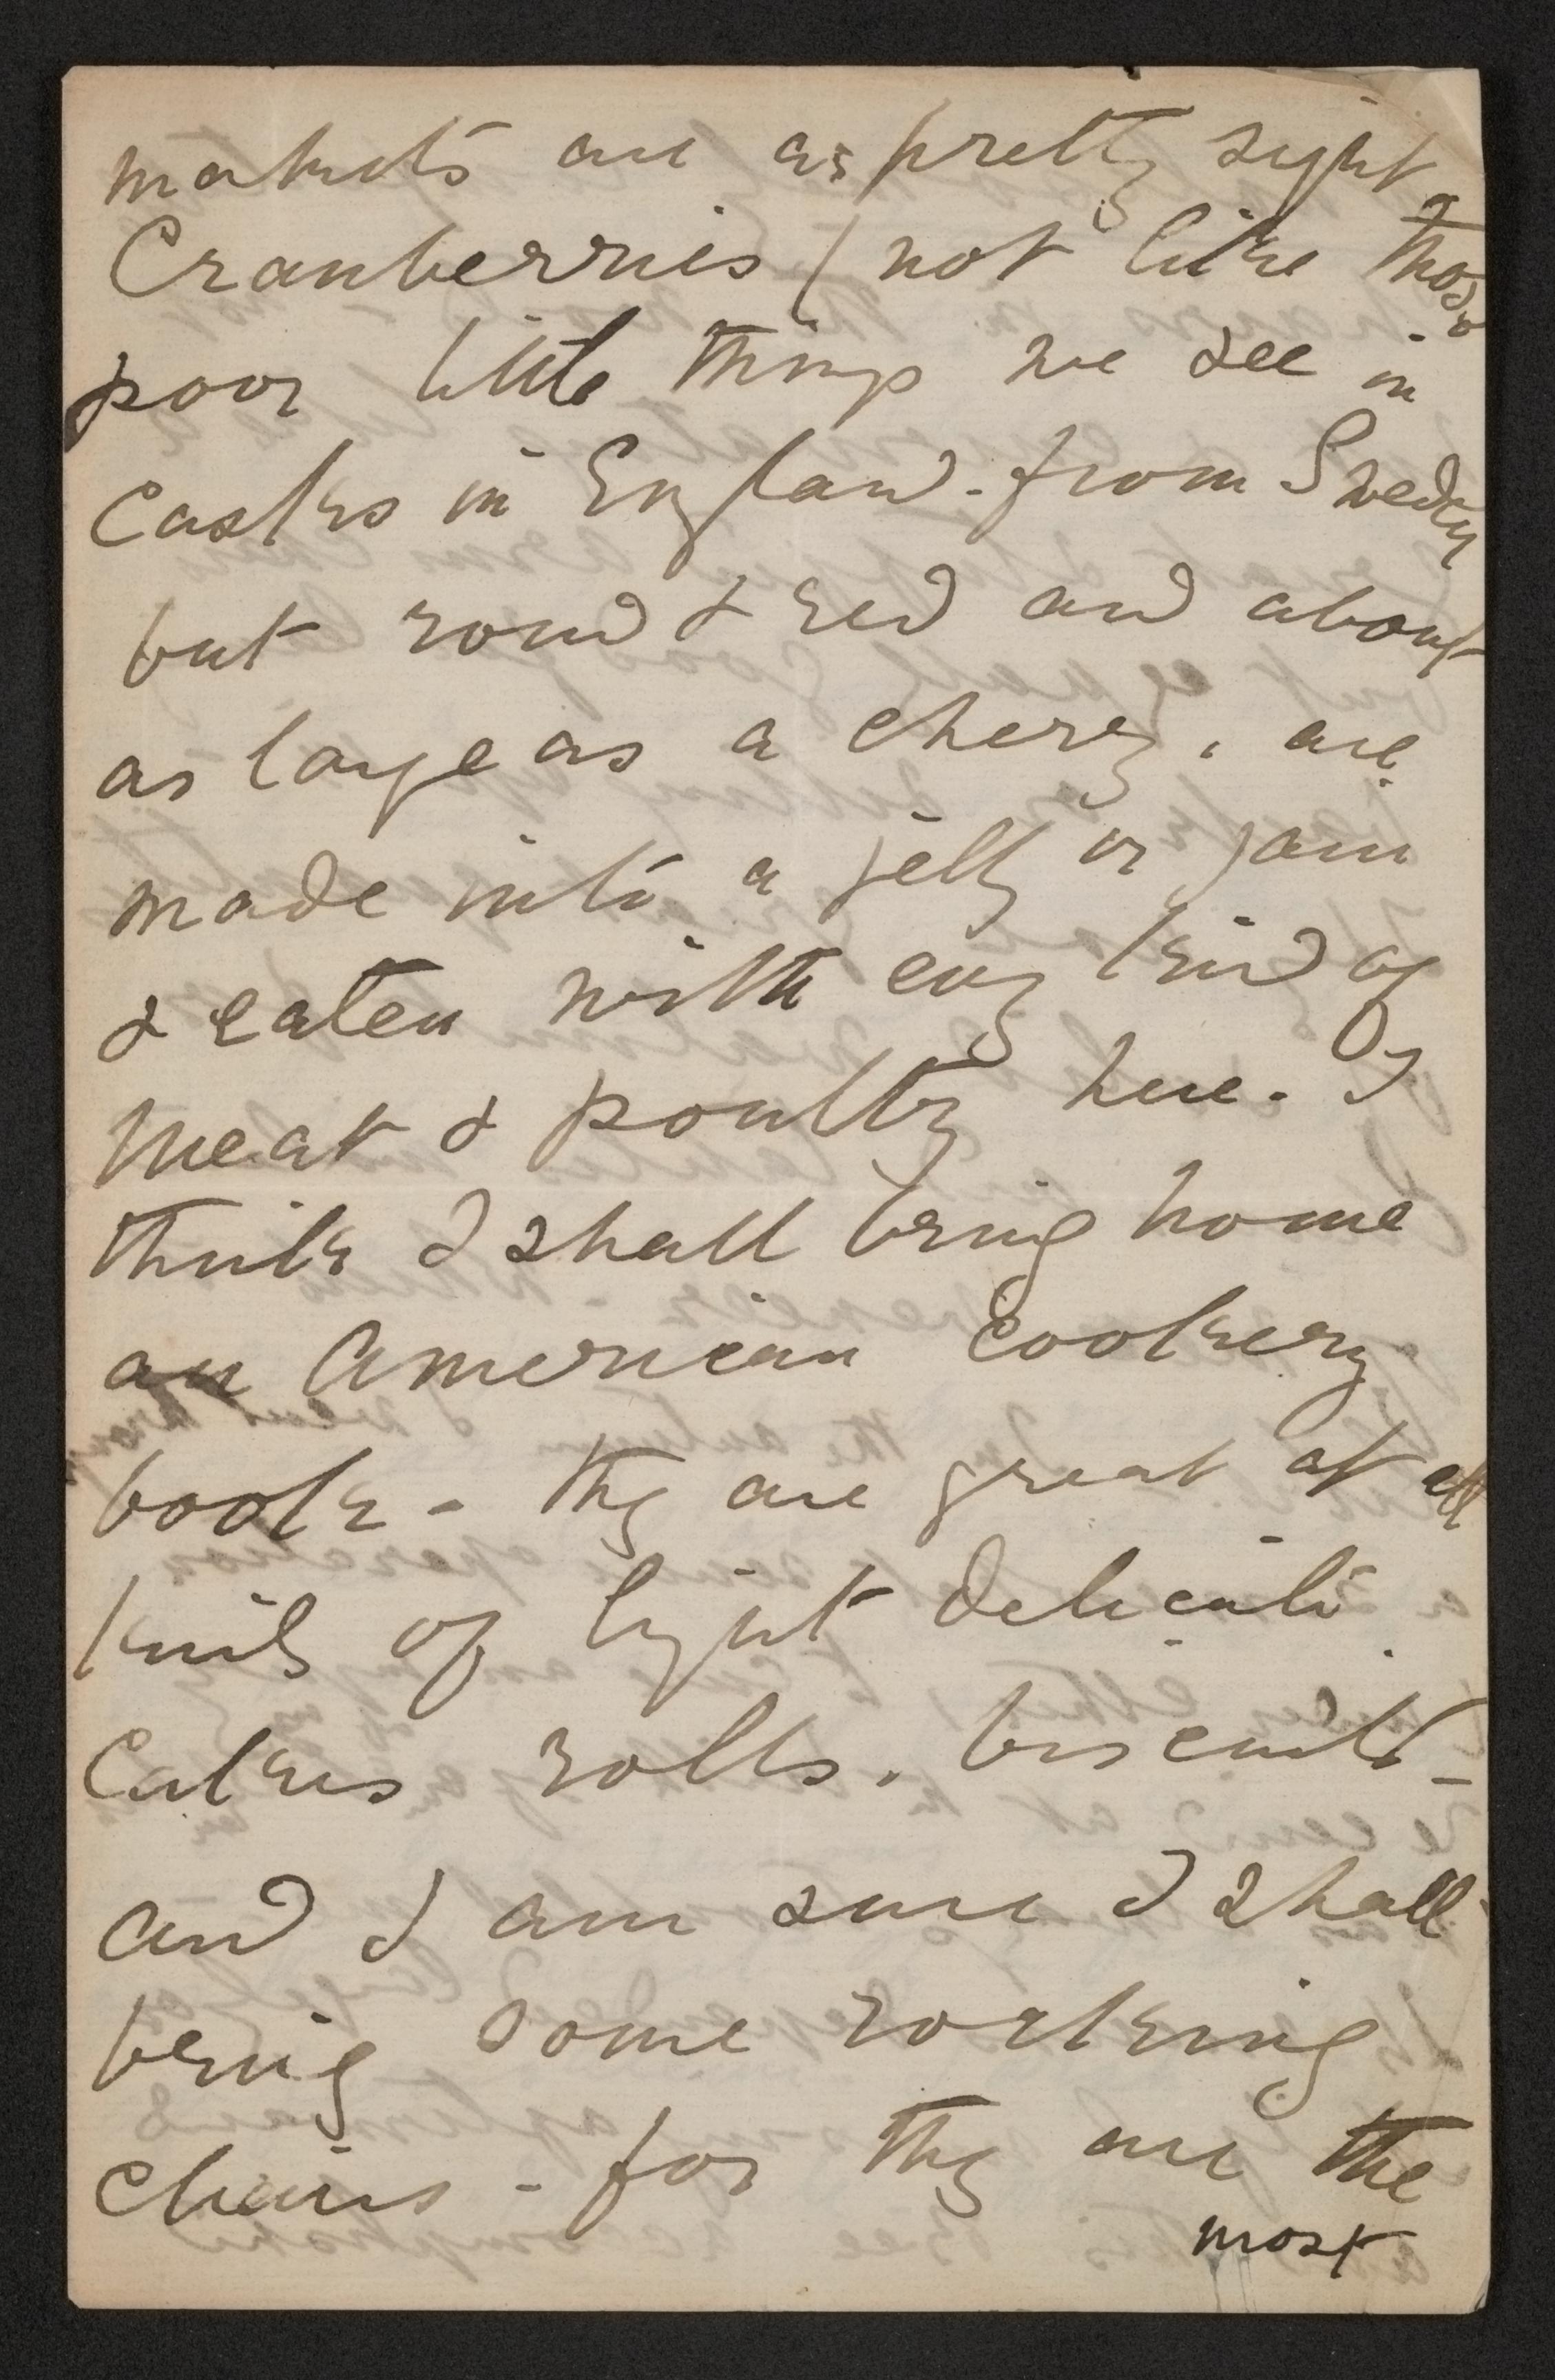 markets are as pretty sight.
Cranberries (not like those
poor little things we see in
Casks in England - from Sweden
but round & red and about
as large as a cherry, are
made into a jelly or jam
& eaten with any kind of
meat & poultry here. I
think I shall bring home
an American cookery
book - they are great at all
kinds of light delicate
Cakes rolls, biscuits -
and I am sure I shall
bring some rocking
chairs - for they are the
most